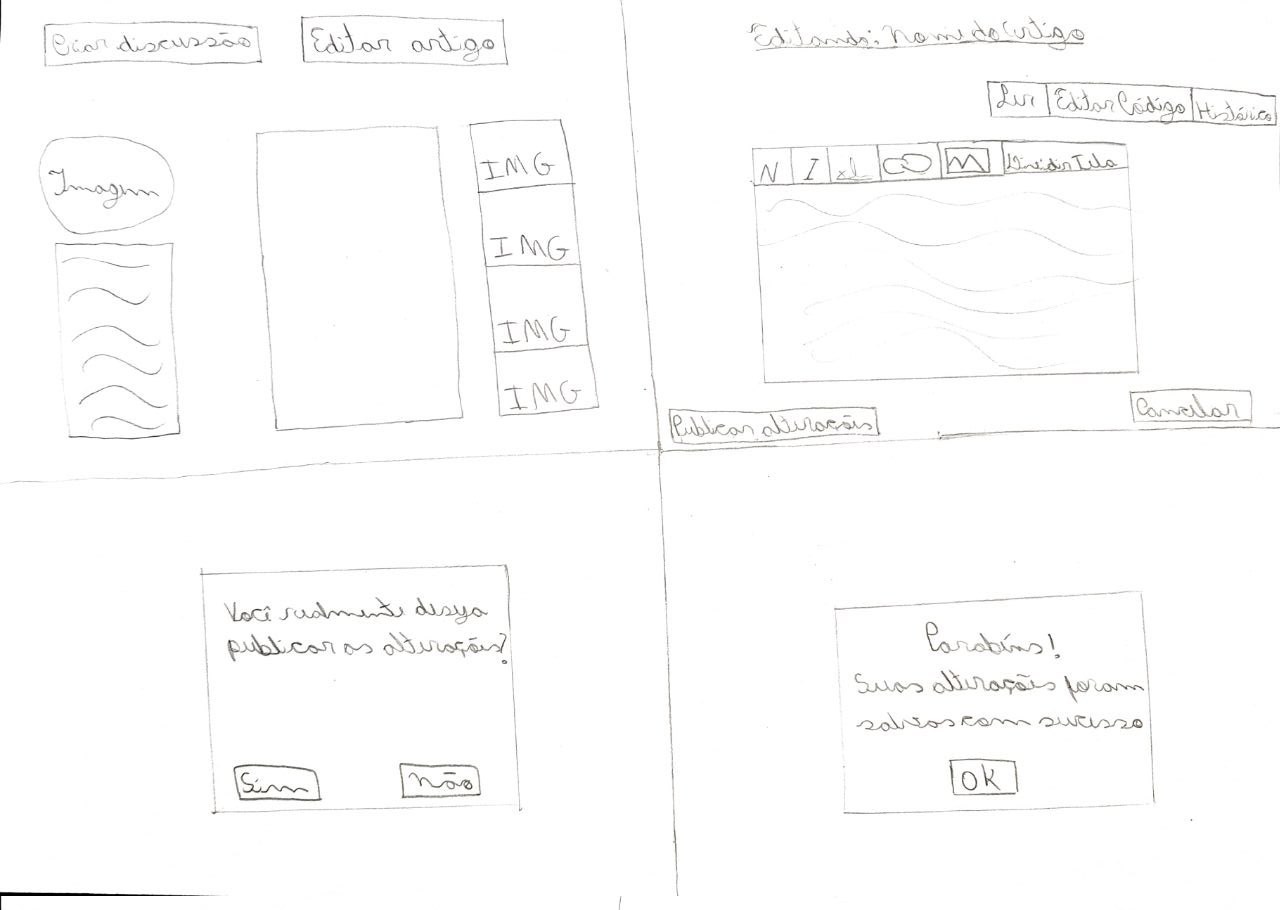 Criar discussão
Editar artigo
Imagem
IMG
IMG
IMG
IMG
Editando: Nome do artigo
Ler
Editar Código
Histórico
N
I
Dividir Tela
Publicar alterações
Cancelar
Você realmente deseja
publicar as alterações?
Sim
Não
Parabéns!
Suas alterações foram
salvas com sucesso
OK